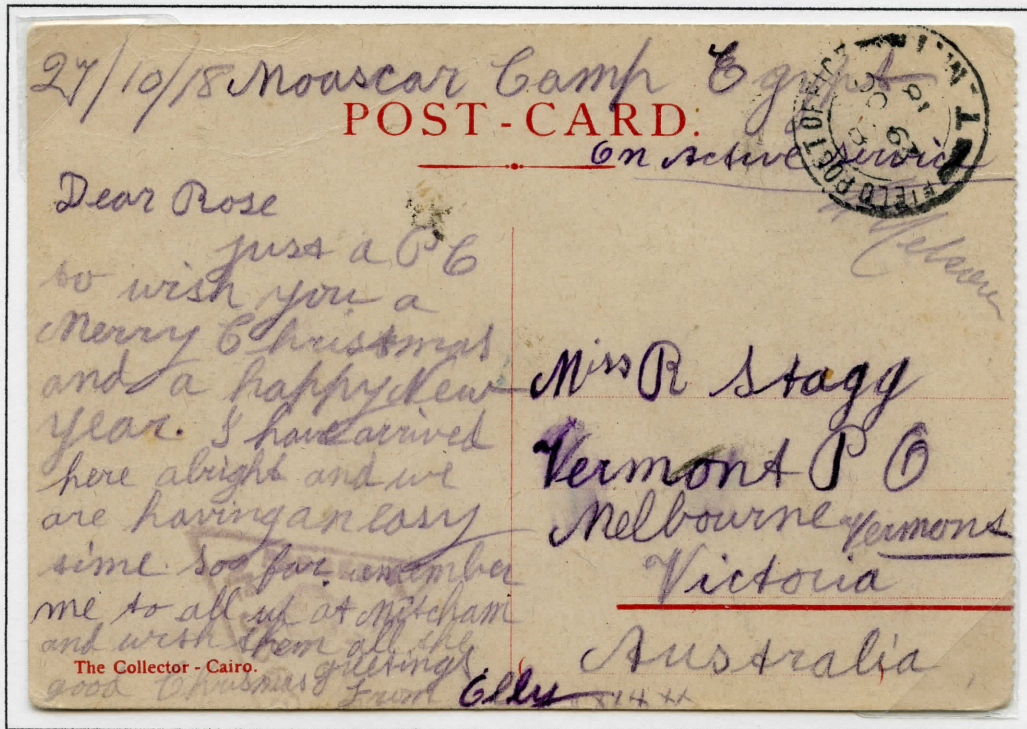 27/10/18 Moascar Camp Egypt
POST-CARD.
On Active Service
FIELD POST OFFICE
Dear Rose
just a P C
to wish you a
Merry Christmas
and a happy New
year. I have arrived
here alright and we
are having an easy
time soo far. remember
me to all up at Mitcham
and wish them all the
good Christmas greetings
From
Miss R Stagg
Vermont P O
Melbourne Vermont
Victoria
Australia
The Collector - Cairo.